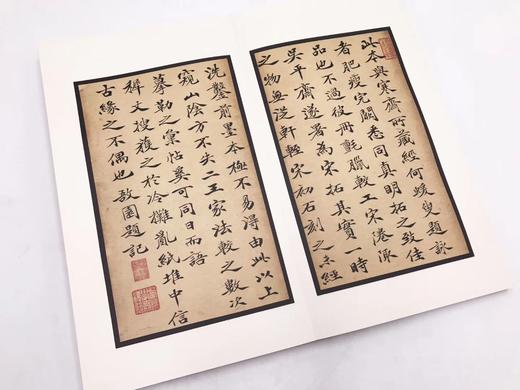 此本與寒齋所藏經何蝯叟題詠
者肥瘦完闕悉同真明拓之致佳
品也不過彼冊氈臘較工
吳平齋遂署為宋拓其實一時
之物無從軒輊宋初石刻之未經
洗鑿前墨本極不易得由此以上
窺山陰方不失二王家法較之數次
摹勒之彙帖奚可同日而語
稺文搜獲之於冷攤亂紙堆中信
古緣之不偶也敔園題記